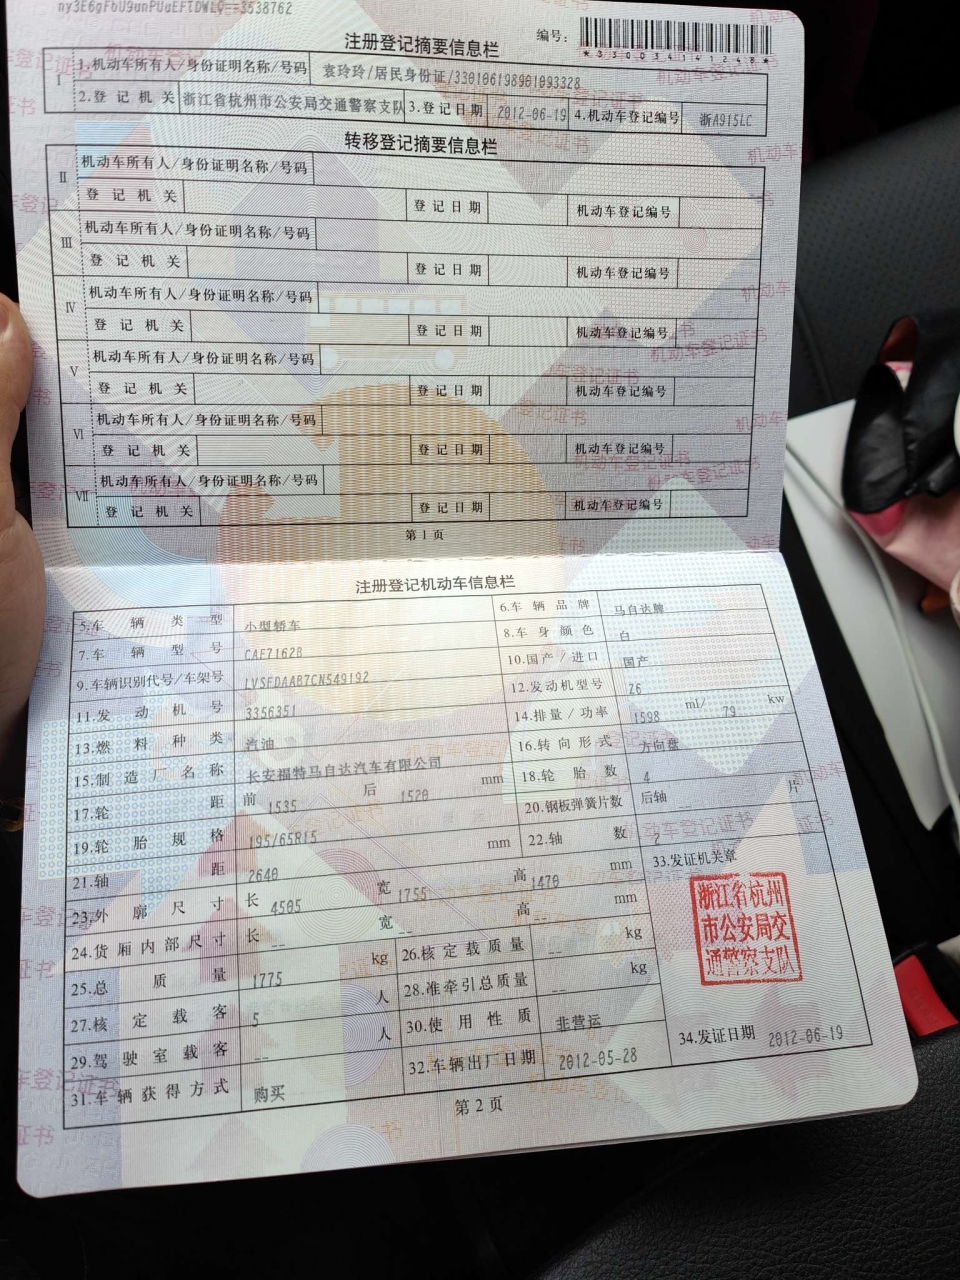 ny3E6gFbU9unPUuEFTDWLQ==3538762
编号：
*330034141248*
注册登记摘要信息栏
I 1.机动车所有人/身份证明名称/号码 袁玲玲/居民身份证/330106198901093328
2.登记机关 浙江省杭州市公安局交通警察支队 3.登记日期 2012-06-19 4.机动车登记编号 浙A915LC
转移登记摘要信息栏
II 机动车所有人/身份证明名称/号码
登记机关 登记日期 机动车登记编号
III 机动车所有人/身份证明名称/号码
登记机关 登记日期 机动车登记编号
IV 机动车所有人/身份证明名称/号码
登记机关 登记日期 机动车登记编号
V 机动车所有人/身份证明名称/号码
登记机关 登记日期 机动车登记编号
VI 机动车所有人/身份证明名称/号码
登记机关 登记日期 机动车登记编号
VII 机动车所有人/身份证明名称/号码
登记机关 登记日期 机动车登记编号
第1页
注册登记机动车信息栏
5.车辆类型 小型轿车 6.车辆品牌 马自达牌
7.车辆型号 CAF7162B 8.车身颜色 白
9.车辆识别代号/车架号 LVSFDAAB7CN549192 10.国产/进口 国产
11.发动机号 3356351 12.发动机型号 Z6
13.燃料种类 汽油 14.排量/功率 1598 ml/ 79 kw
15.制造厂名称 长安福特马自达汽车有限公司 16.转向形式 方向盘
17.轮距 前 1535 后 1520 mm 18.轮胎数 4
19.轮胎规格 195/65R15 20.钢板弹簧片数 后轴 -- 片
21.轴距 2640 mm 22.轴数 2
23.外廓尺寸 长 4505 宽 1755 高 1470 mm 33.发证机关章
24.货厢内部尺寸 长 -- 宽 -- 高 -- mm
浙江省杭州
市公安局交
通警察支队
25.总质量 1775 kg 26.核定载质量 -- kg
27.核定载客 5 人 28.准牵引总质量 -- kg
29.驾驶室载客 -- 人 30.使用性质 非营运
31.车辆获得方式 购买 32.车辆出厂日期 2012-05-28 34.发证日期 2012-06-19
第2页